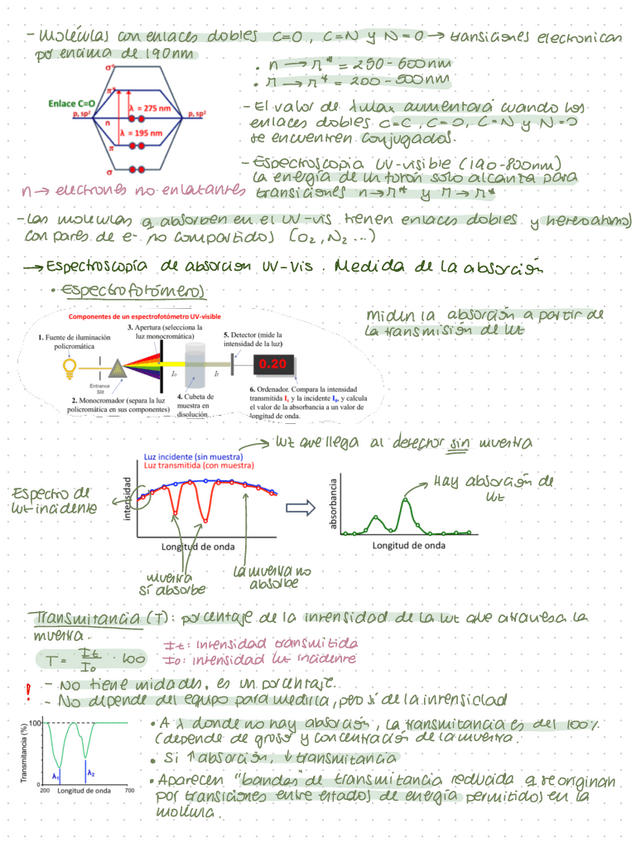 - Moléculas con enlaces dobles C=O, C=N y N=O → transiciones electronicas
por encima de 190nm
σ*
π*
Enlace C=O
λ = 275 nm
p, sp²
n
p, sp²
λ = 195 nm
π
σ
• n → π* = 250 - 600nm
• π → π* = 200 - 500nm
- El valor de λmax aumentará cuando los
enlaces dobles C=C, C=O, C=N y N=O
se encuentren conjugados.
- Espectroscopia UV-visible (190-800nm)
La energía de un fotón solo alcanza para
transiciones n→π* y π→π*
n → electrones no enlazantes
- Las moléculas q absorben en el UV-vis tienen enlaces dobles y heteroátomos
con pares de e- no compartidos (O₂, N₂ ...)
→ Espectroscopía de absorción UV-Vis. Medida de la absorción
• Espectrofotómeros
Componentes de un espectrofotómetro UV-visible
1. Fuente de iluminación
policromática
3. Apertura (selecciona la
luz monocromática)
5. Detector (mide la
intensidad de la luz)
Entrance
Slit
I₀
Iₜ
0.20
2. Monocromador (separa la luz
policromática en sus componentes)
4. Cubeta de
muestra en
disolución.
6. Ordenador. Compara la intensidad
transmitida Iₜ y la incidente I₀, y calcula
el valor de la absorbancia a un valor de
longitud de onda.
miden la absorción a partir de
la transmisión de luz
→ luz que llega al detector sin muestra
Luz incidente (sin muestra)
Luz transmitida (con muestra)
Espectro de
luz incidente
intensidad
Longitud de onda
muestra
sí absorbe
La muestra no
absorbe
absorbancia
Longitud de onda
Hay absorción de
luz
Transmitancia (T): porcentaje de la intensidad de la luz que atraviesa la
muestra.
T = It/I₀ · 100
It: intensidad transmitida
I₀: intensidad luz incidente
! - No tiene unidades, es un porcentaje.
- No depende del equipo para medirla, pero sí de la intensidad
100
Transmitancia (%)
0
λ₁
λ₂
200
Longitud de onda
700
• A λ donde no hay absorción, la transmitancia es del 100%
(depende de grosor y concentración de la muestra.
• Si ↑ absorción, ↓ transmitancia
• Aparecen "bandas" de transmitancia reducida q se originan
por transiciones entre estados de energía permitidos en la
molécula.